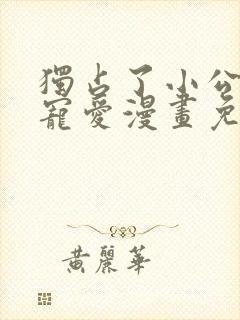 獨占了小公
寵愛漫畫免
黃麗華